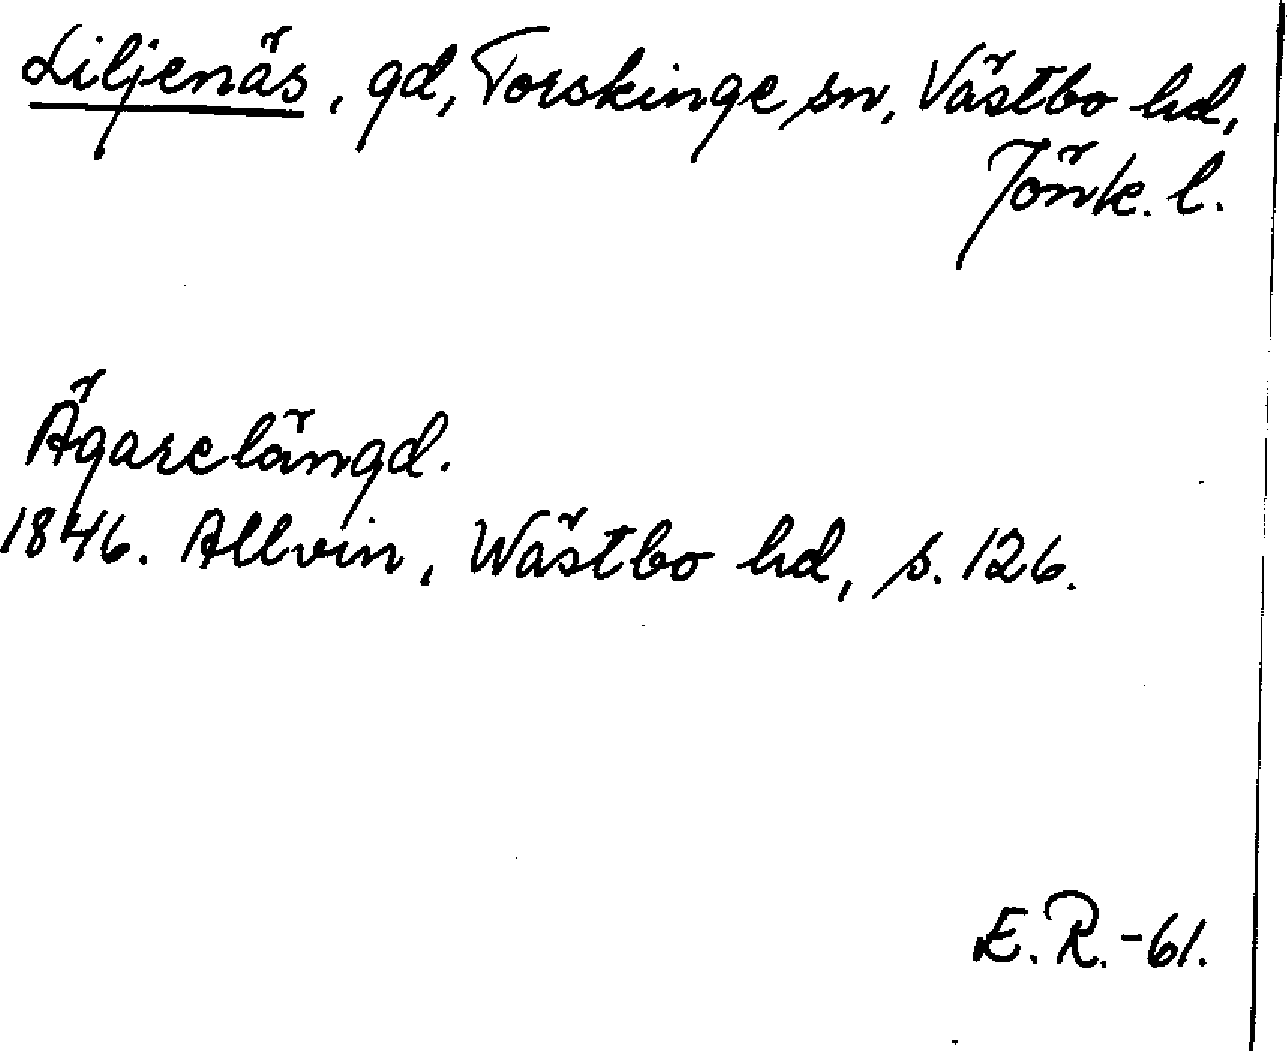 Liljenäs, gd, Torskinge sn, Västbo hd,
Jönk. l.
Ägarelängd.
1846. Allvin, Wästbo hd, s. 126.
E.R.-61.